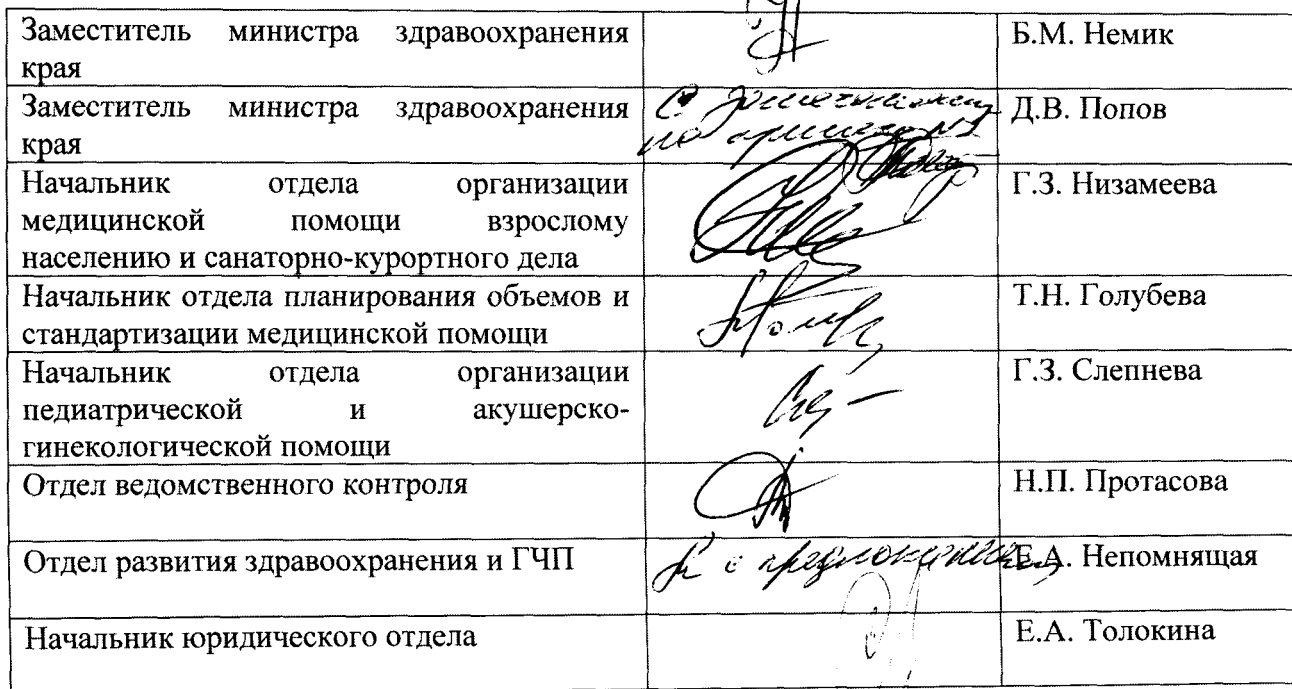 Заместитель министра здравоохранения
края
Б.М. Немик
Заместитель министра здравоохранения
края
С замечаниями
по приказу №1
Д.В. Попов
Начальник отдела организации
медицинской помощи взрослому
населению и санаторно-курортного дела
Г.З. Низамеева
Начальник отдела планирования объемов и
стандартизации медицинской помощи
Т.Н. Голубева
Начальник отдела организации
педиатрической и акушерско-
гинекологической помощи
Г.З. Слепнева
Отдел ведомственного контроля
Н.П. Протасова
Отдел развития здравоохранения и ГЧП
с предложениями
Е.А. Непомнящая
Начальник юридического отдела
Е.А. Толокина